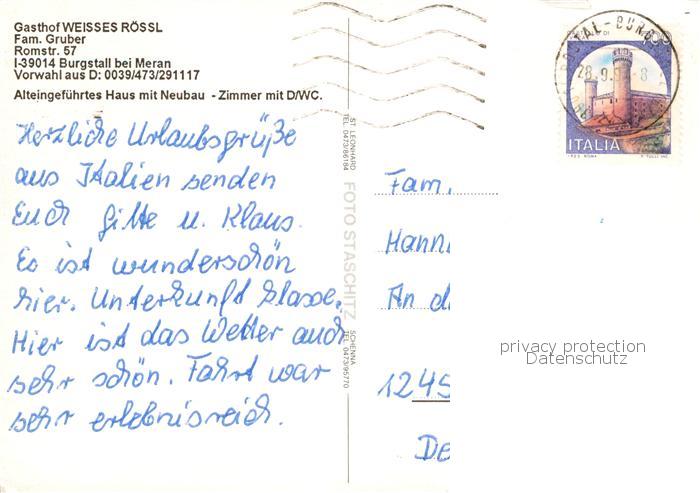 Gasthof WEISSES RÖSSL
Fam. Gruber
Romstr. 57
I-39014 Burgstall bei Meran
Vorwahl aus D: 0039/473/291117
Alteingeführtes Haus mit Neubau - Zimmer mit D/WC.
Herzliche Urlaubsgrüße
aus Italien senden
Euch Gitte u. Klaus.
Es ist wunderschön
hier. Unterkunft klasse.
Hier ist das Wetter auch
sehr schön. Fahrt war
sehr erlebnisreich.
ST. LEONHARD
TEL. 0473/86184
FOTO STASCHITZ
SCHENNA
TEL. 0473/95770
ITALIA
Fam.
Hann
An d
1245
De
privacy protection
Datenschutz